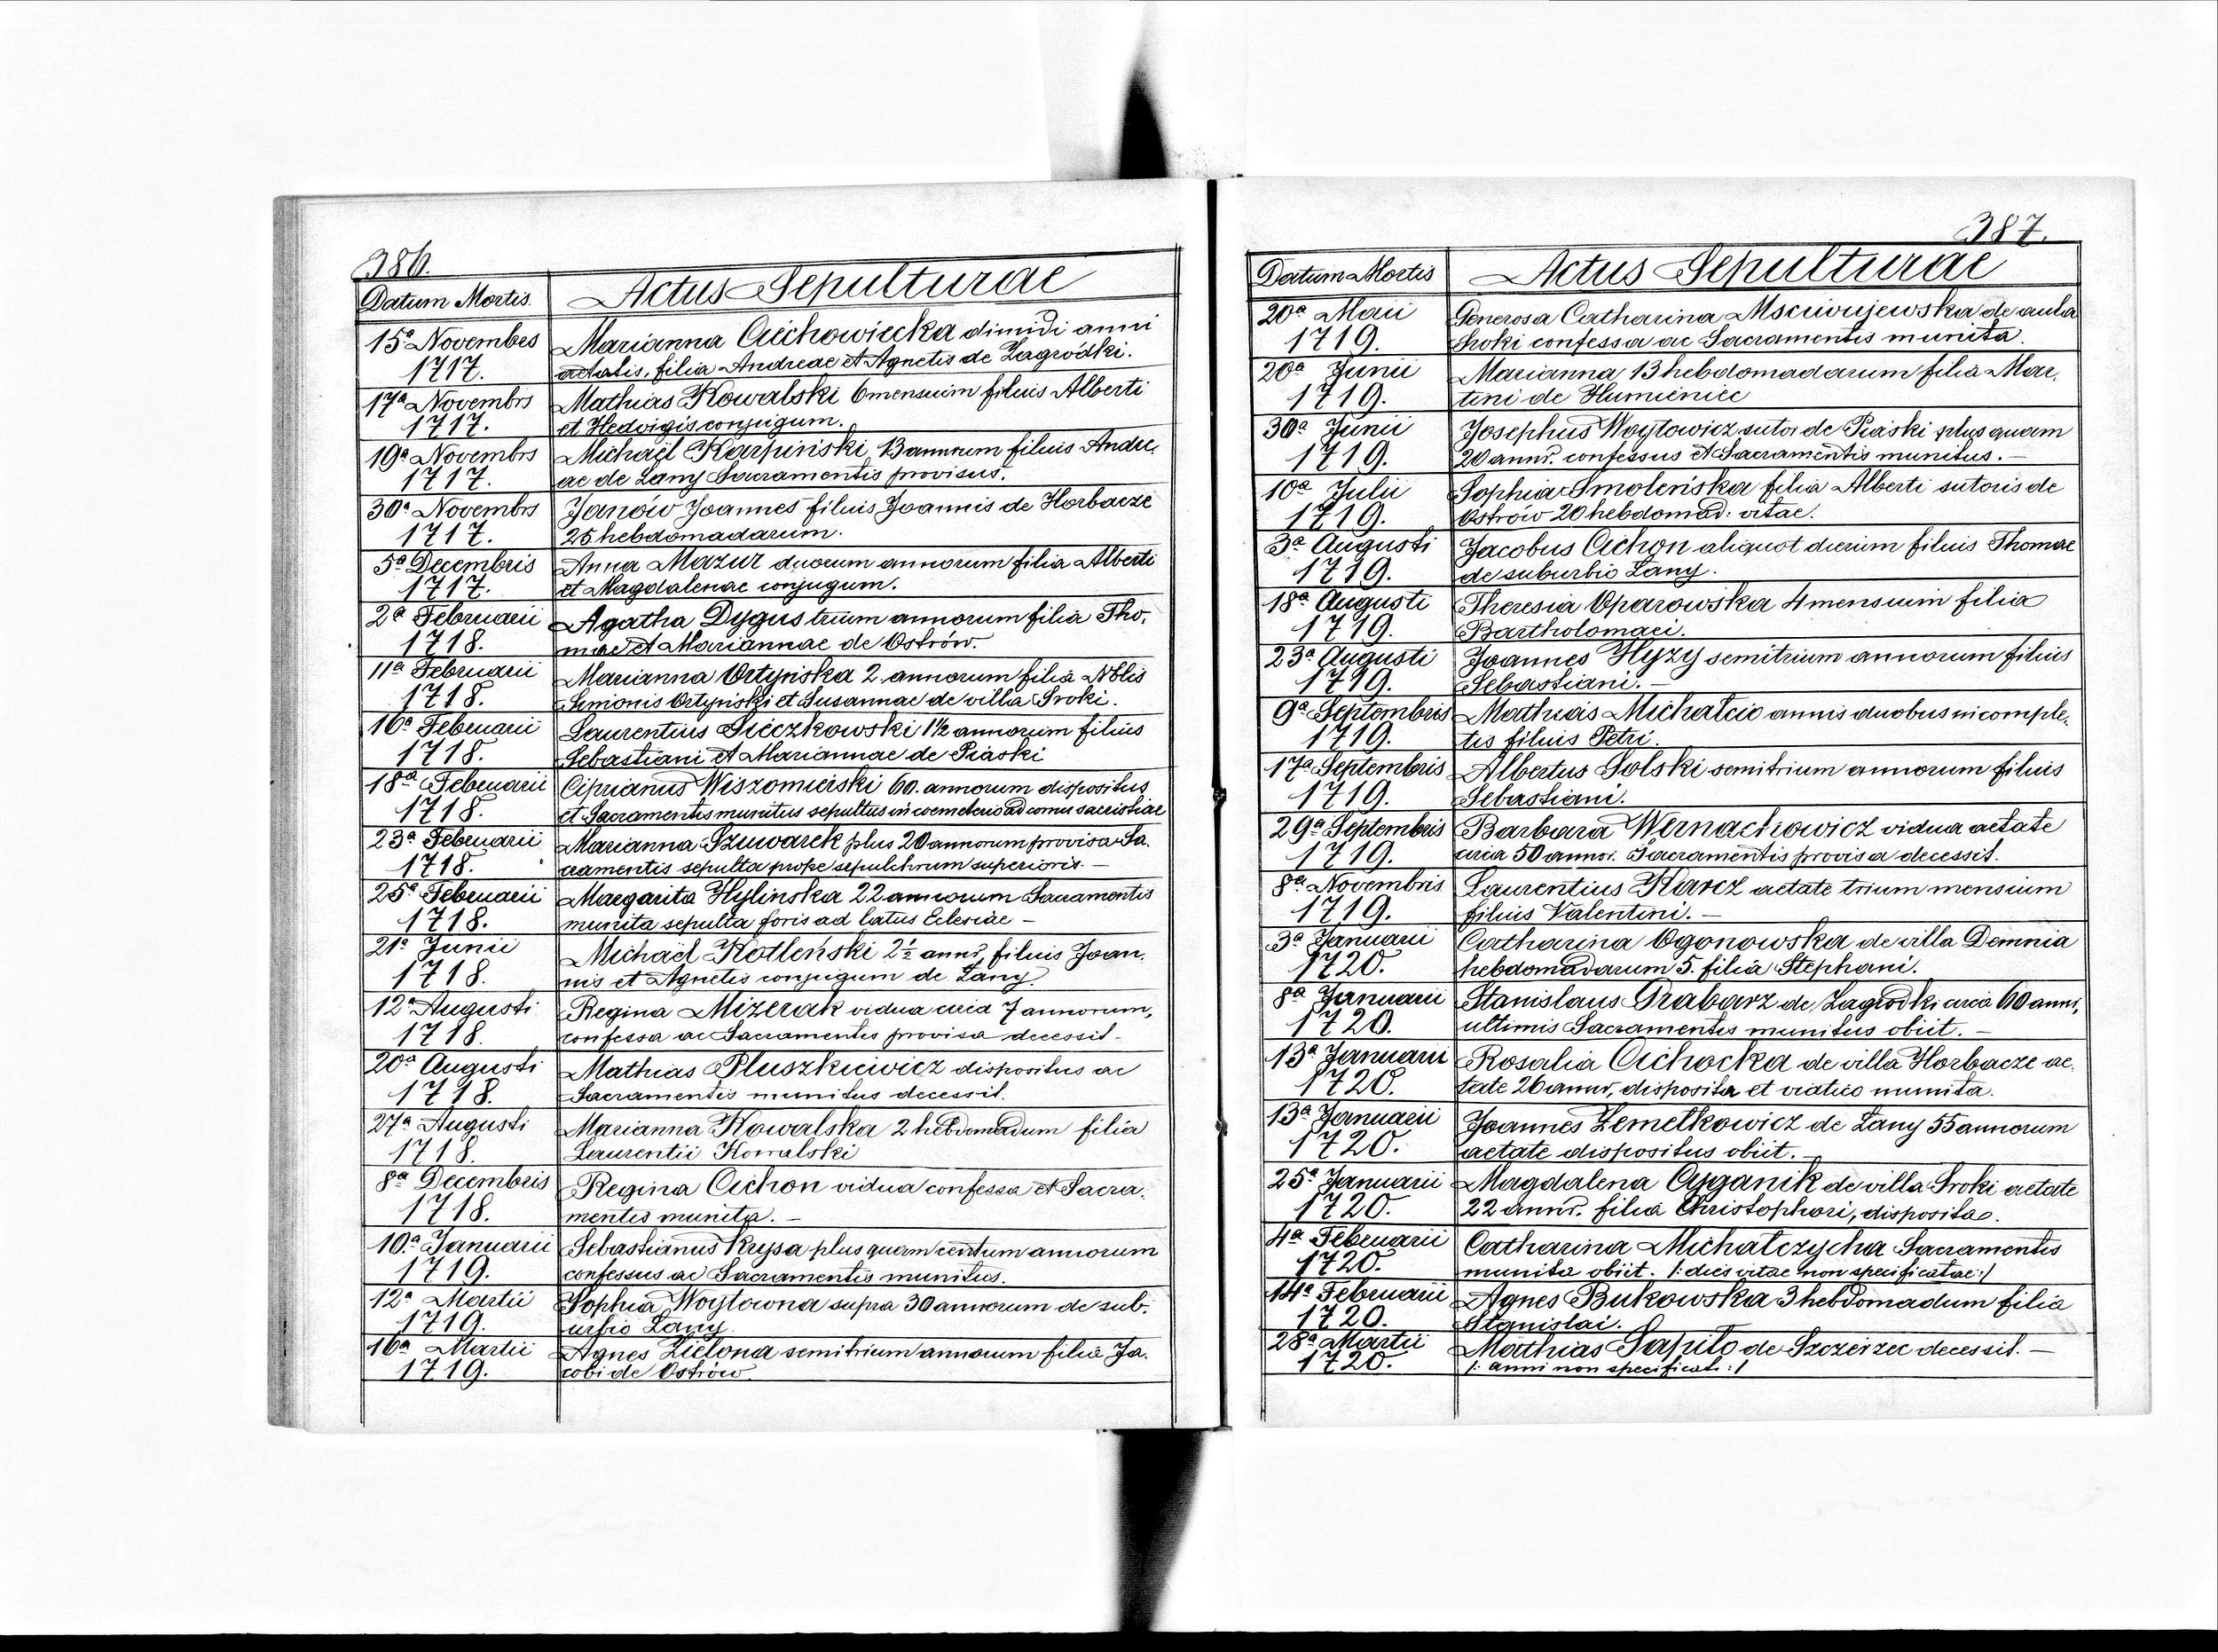 386.
Datum Mortis. Actus Sepulturae
15ª Novembris Marianna Cichowiecka dimidi anni
1717. aetatis, filia Andreae et Agnetis de Zagródki.
17ª Novembrs Mathias Kowalski 6 mensium filius Alberti
1717. et Hedvigis conjugum.
19ª Novembrs Michaël Karpiński 13 annorum filius Andre,
1717. ae de Lany Sacramentis provisus.
30ª Novembrs Janów Joannes filius Joannis de Horbacze
1717. 25 hebdomadarum.
5ª Decembris Anna Mazur duorum annorum filia Alberti
1717. et Magdalenae conjugum.
2ª Februarii Agatha Dygus trium annorum filia Tho,
1718. mae et Mariannae de Ostrów.
11ª Februarii Marianna Ortyńska 2 annorum filia NBlis
1718. Simionis Ortyński et Susannae de villa Sroki.
16ª Februarii Laurentius Sieczkowski 1½ annorum filius
1718. Sebastiani et Mariannae de Piaski
18ª Februarii Ciprianus Wiszomierski 60. annorum dispositus
1718. et Sacramentis munitus sepultus in coemeterio ad cornu sacristiae
23ª Februarii Marianna Szuwarek plus 20 annorum provisa Sa,
1718. cramentis sepulta prope sepulchrum superioris. —
25ª Februarii Margarita Hylinska 22 annorum Sacramentis
1718. munita sepulta foris ad latus Eclesiae —
21ª Junii Michaël Kotleński 2½ annr, filius Joan,
1718. nis et Agnetis conjugum de Lany.
12ª Augusti Regina Mizerak vidua circa 7 annorum,
1718. confessa ac Sacramentis provisa decessit.
20ª Augusti Mathias Pluszkiewicz dispositus ac
1718. Sacramentis munitus decessit.
27ª Augusti Marianna Kowalska 2 hebdomadum filia
1718. Laurentii Kowalski
8ª Decembris Regina Cichon vidua confessa et Sacra,
1718. mentis munita. —
10.ª Januarii Sebastianus Krysa plus quam centum annorum
1719. confessus ac Sacramentis munitus.
12ª Martii Sophia Woytowna supra 30 annorum de sub,
1719. urbio Lany.
16ª Martii Agnes Zielona semitrium annorum filia Ja,
1719. cobi de Ostrów.
387.
Datum Mortis Actus Sepulturae
20ª Maii Generosa Catharina Mscivujewska de aula
1719. Sroki confessa ac Sacramentis munita.
20ª Junii Marianna 13 hebdomadarum filia Mar,
1719. tini de Humieniec
30ª Junii Josephus Woytowicz sutor de Piaski plus quam
1719. 20 annr. confessus et Sacramentis munitus. —
10ª Julii Sophia Smoleńska filia Alberti sutoris de
1719. Ostrów 20 hebdomad: vitae.
3ª Augusti Jacobus Cichon aliquot dierum filius Thomae
1719. de suburbio Lany.
18ª Augusti Theresia Oparowska 4 mensium filia
1719. Bartholomaei.
23ª Augusti Joannes Hyzy semitrium annorum filius
1719. Sebastiani. —
9ª Septembris Mathias Michalcio annis duobus incomple,
1719. tis filius Petri.
17ª Septembris Albertus Solski semitrium annorum filius
1719. Sebastiani.
29ª Septembris Barbara Wernachowicz vidua aetate
1719. circa 50 annor. Sacramentis provisa decessit.
8ª Novembris Laurentius Karcz aetate trium mensium
1719. filius Valentini. —
3ª Januarii Catharina Ogonowska de villa Demnia
1720. hebdomadarum 5. filia Stephani.
8ª Januarii Stanislaus Grabarz de Zagrodki circa 60 anni,
1720. ultimis Sacramentis munitus obiit. —
13ª Januarii Rosalia Cichocka de villa Horbacze ae,
1720. tate 26 annr, disposita et viatico munita.
13ª Januarii Joannes Zemelkowicz de Lany 55 annorum
1720. aetate dispositus obiit. —
25ª Januarii Magdalena Cyganik de villa Sroki aetate
1720. 22 annr. filia Christophori, disposita.
4ª Februarii Catharina Michalczycha Sacramentis
1720. munita obiit. /: dies vitae non specificatae :/
14ª Februarii Agnes Bukowska 3 hebdomadum filia
1720. Stanislai.
28ª Martii Mathias Saputo de Szczeizec decessit. —
1720. /: anni non specificati :/